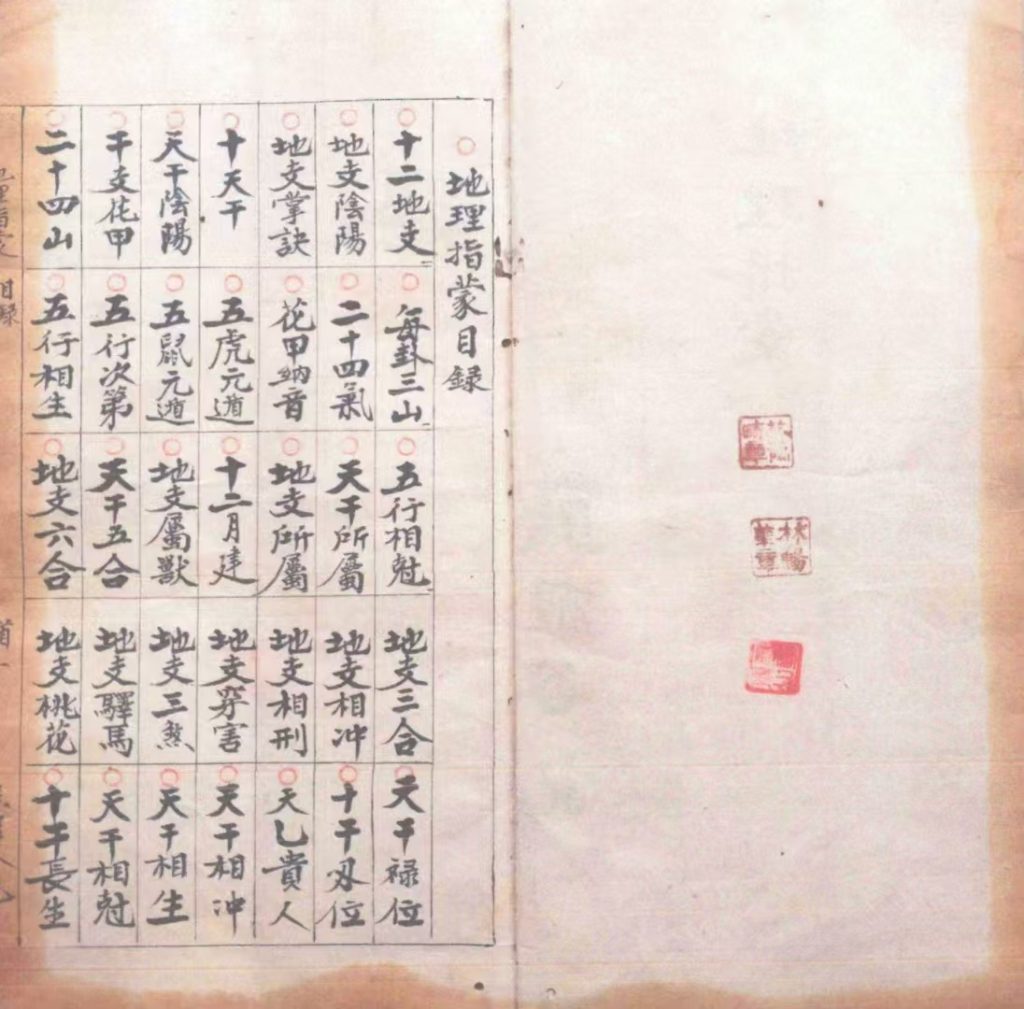 地理指蒙目録
十二地支
地支陰陽
地支掌訣
十天干
天干陰陽
干支花甲
二十四山
每卦三山
二十四氣
花甲納音
五虎元遁
五鼠元遁
五行次第
五行相生
五行相尅
天干所屬
地支所屬
十二月建
地支屬獸
天干五合
地支六合
地支三合
地支相冲
地支相刑
地支穿害
地支三煞
地支驛馬
地支桃花
天干禄位
十干刄位
天乙貴人
天干相冲
天干相生
天干相尅
十干長生
目録